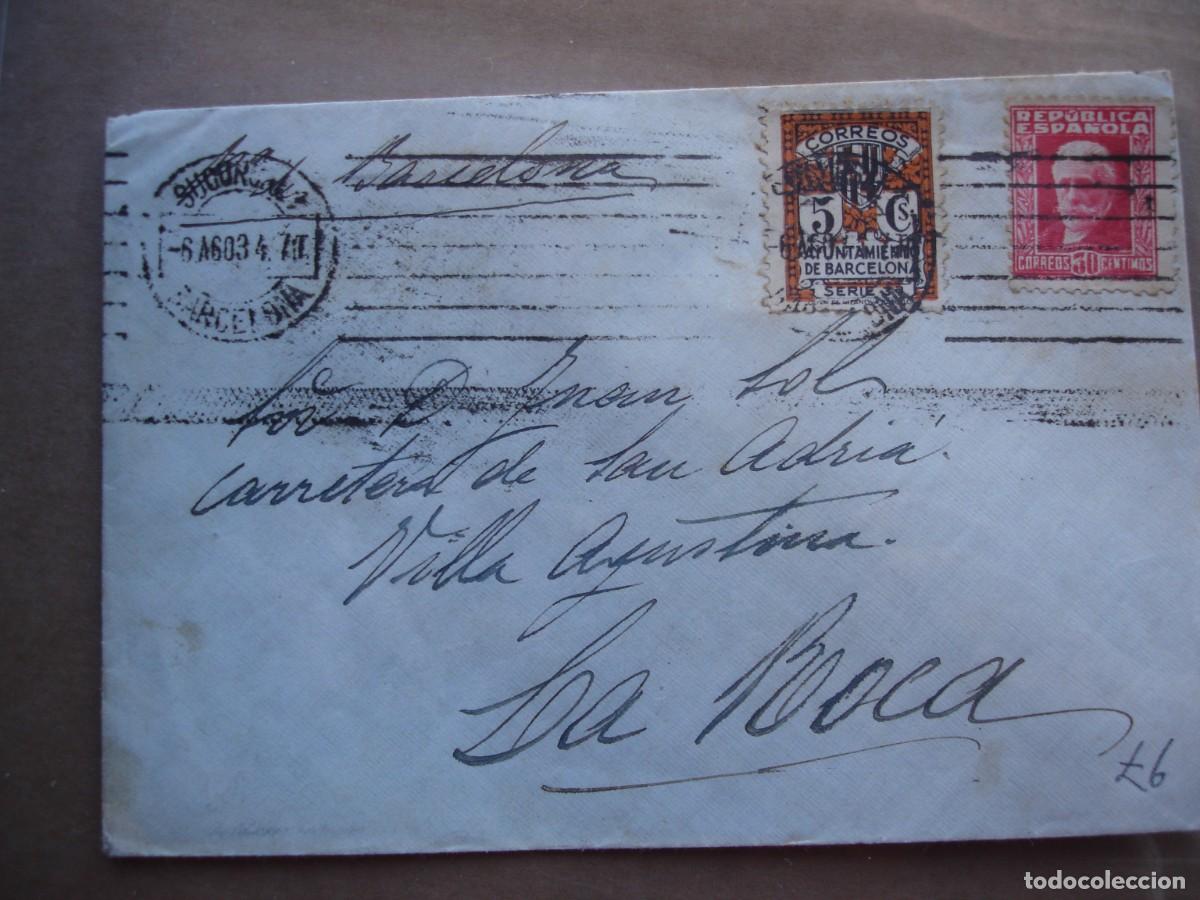 Barcelona
-6 AGO3 4. 7 T.
BARCELONA
CORREOS
5 Cs.
AYUNTAMIENTO
DE BARCELONA
SERIE
REPÚBLICA
ESPAÑOLA
CORREOS 30 CENTIMOS
Sr. D. Juan Sol
Carretera de San Adriá.
Villa Agustina.
La Roca
£6
todocoleccion